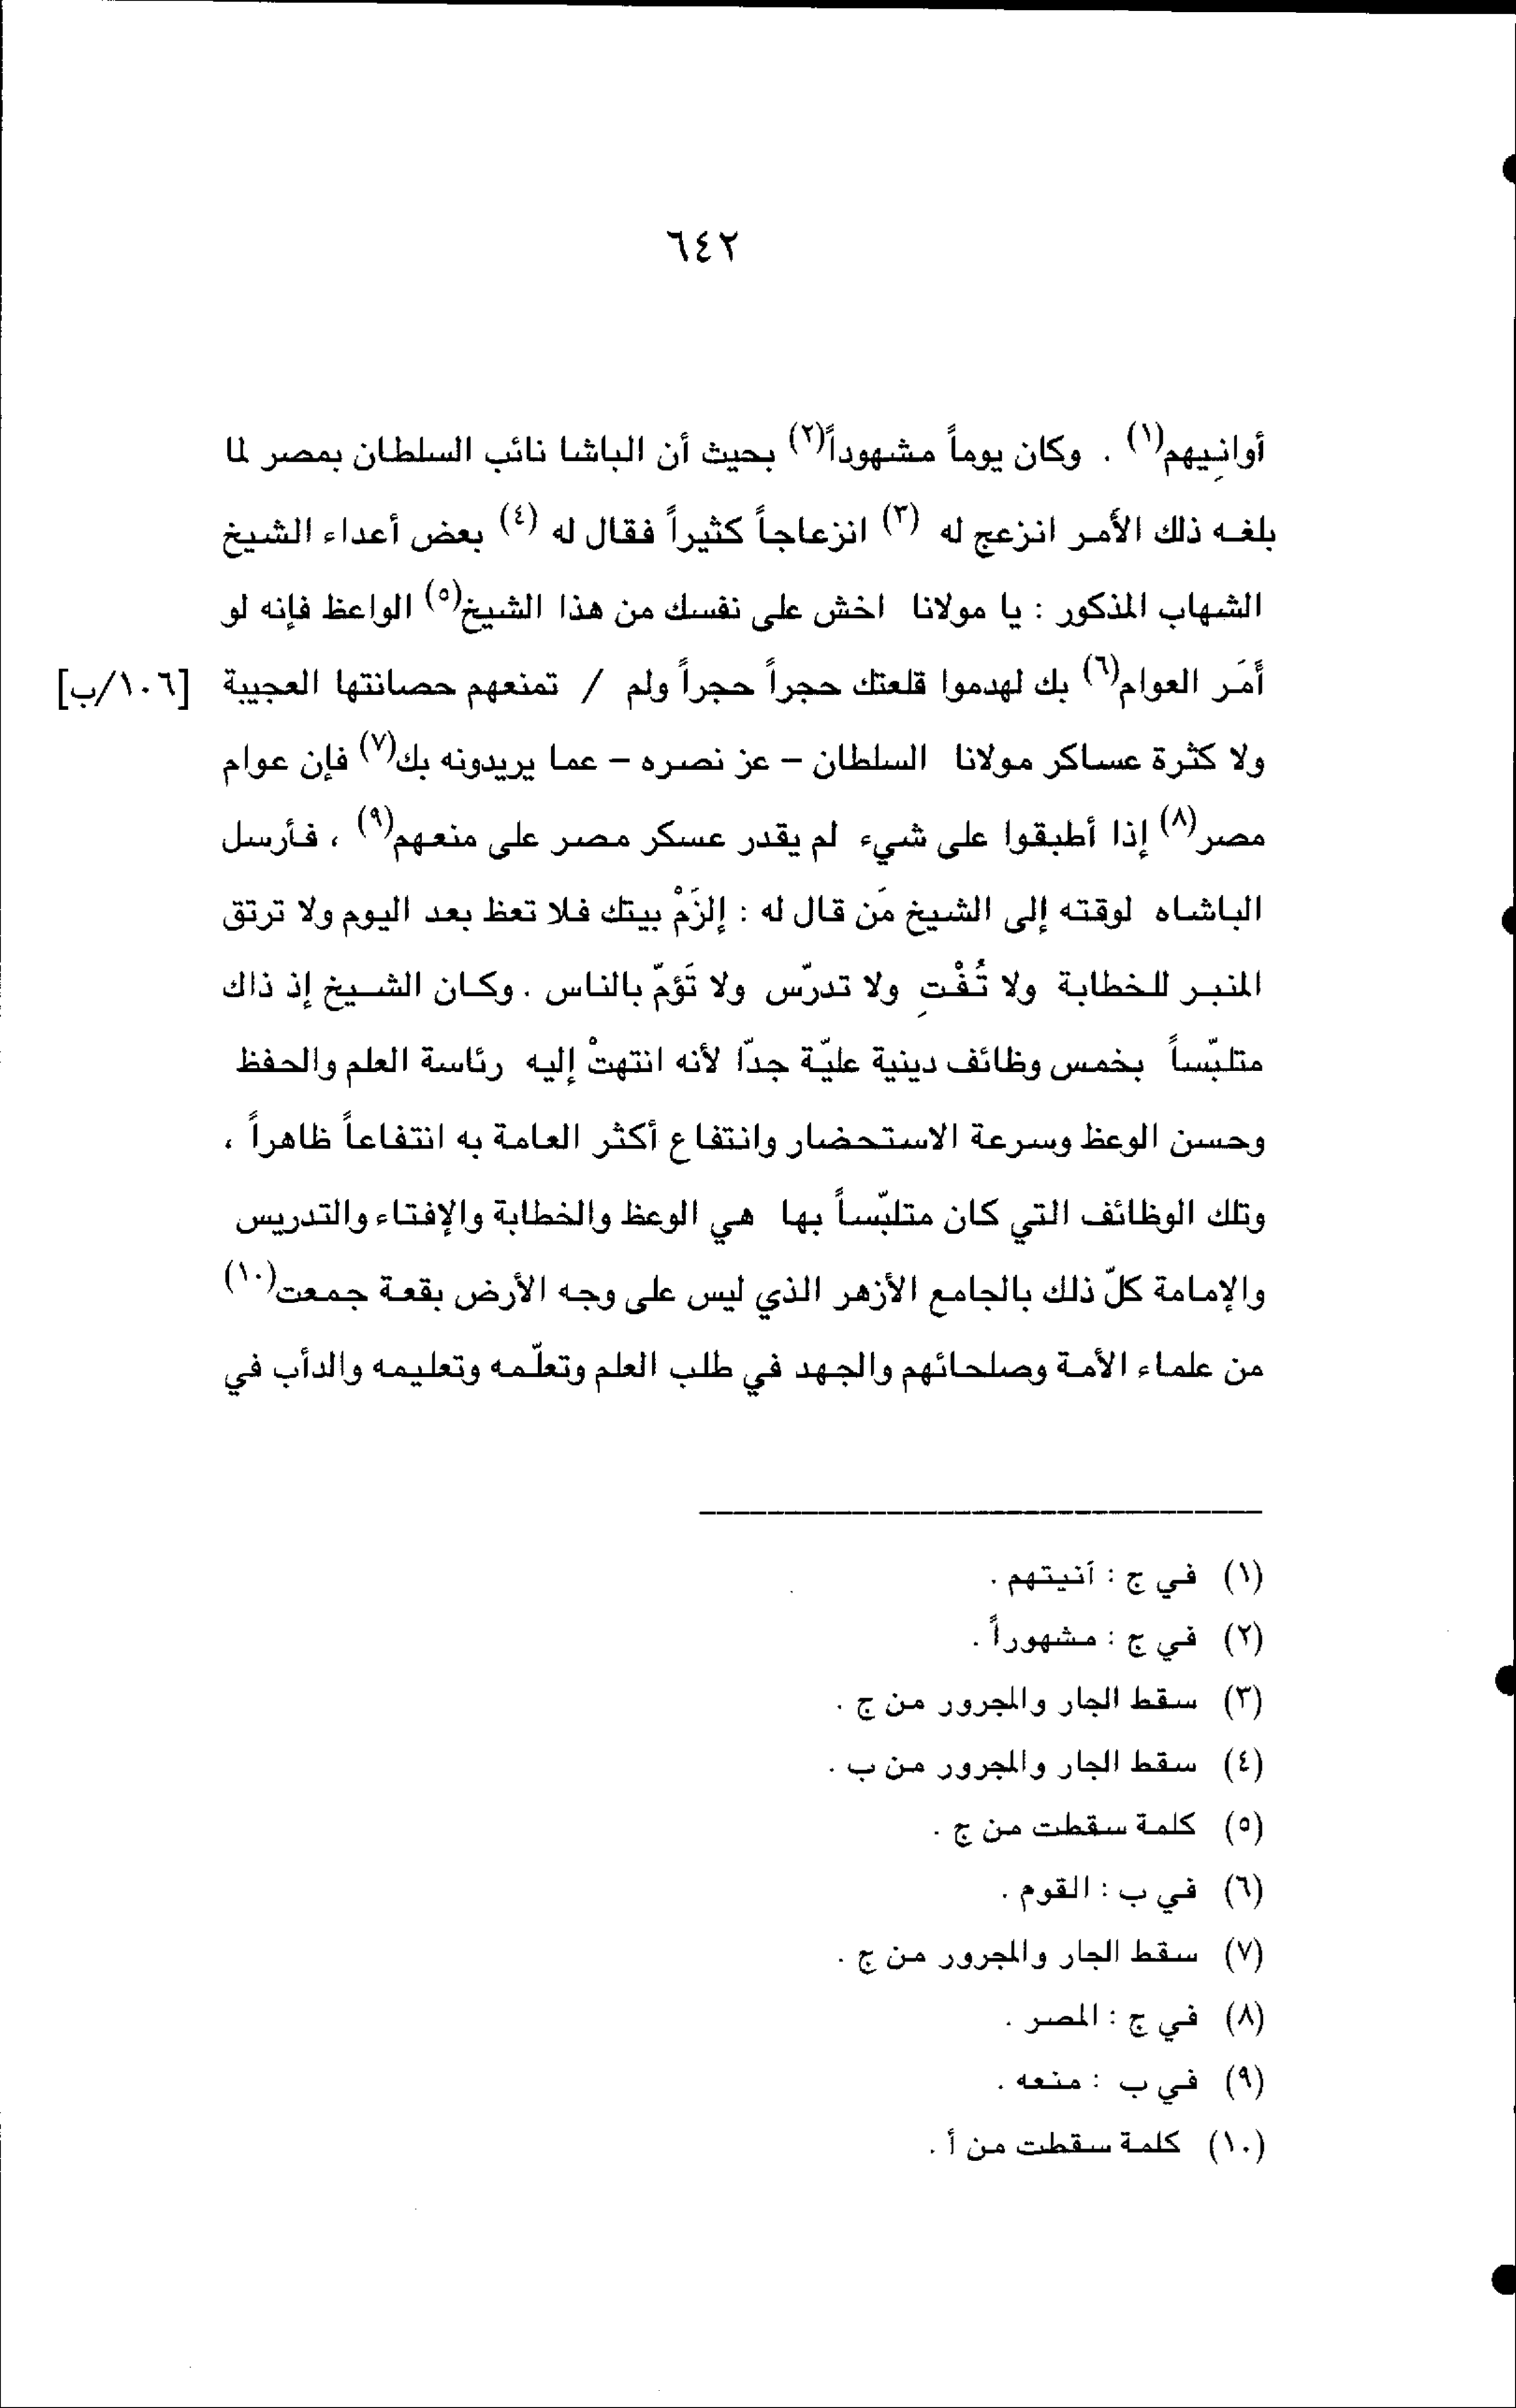 ٦٤٢
أوانِيهم(١) . وكان يوماً مشهوداً(٢) بحيث أن الباشا نائب السلطان بمصر لما
بلغه ذلك الأمر انزعج له (٣) انزعاجاً كثيراً فقال له (٤) بعض أعداء الشيخ
الشهاب المذكور : يا مولانا اخش على نفسك من هذا الشيخ(٥) الواعظ فإنه لو
أَمَر العوام(٦) بك لهدموا قلعتك حجراً حجراً ولم / تمنعهم حصانتها العجيبة [١٠٦/ب]
ولا كثرة عساكر مولانا السلطان – عز نصره – عما يريدونه بك(٧) فإن عوام
مصر(٨) إذا أطبقوا على شيء لم يقدر عسكر مصر على منعهم(٩) ، فأرسل
الباشاه لوقته إلى الشيخ مَن قال له : إلزَمْ بيتك فلا تعظ بعد اليوم ولا ترتق
المنبر للخطابة ولا تُفْتِ ولا تدرّس ولا تَؤمّ بالناس . وكان الشيخ إذ ذاك
متلبّساً بخمس وظائف دينية عليّة جدّا لأنه انتهتْ إليه رئاسة العلم والحفظ
وحسن الوعظ وسرعة الاستحضار وانتفاع أكثر العامة به انتفاعاً ظاهراً ،
وتلك الوظائف التي كان متلبّساً بها هي الوعظ والخطابة والإفتاء والتدريس
والإمامة كلّ ذلك بالجامع الأزهر الذي ليس على وجه الأرض بقعة جمعت(١٠)
من علماء الأمة وصلحائهم والجهد في طلب العلم وتعلّمه وتعليمه والدأب في
(١) في ج : آنيتهم .
(٢) في ج : مشهوراً .
(٣) سقط الجار والمجرور من ج .
(٤) سقط الجار والمجرور من ب .
(٥) كلمة سقطت من ج .
(٦) في ب : القوم .
(٧) سقط الجار والمجرور من ج .
(٨) في ج : المصر .
(٩) في ب : منعه .
(١٠) كلمة سقطت من أ .